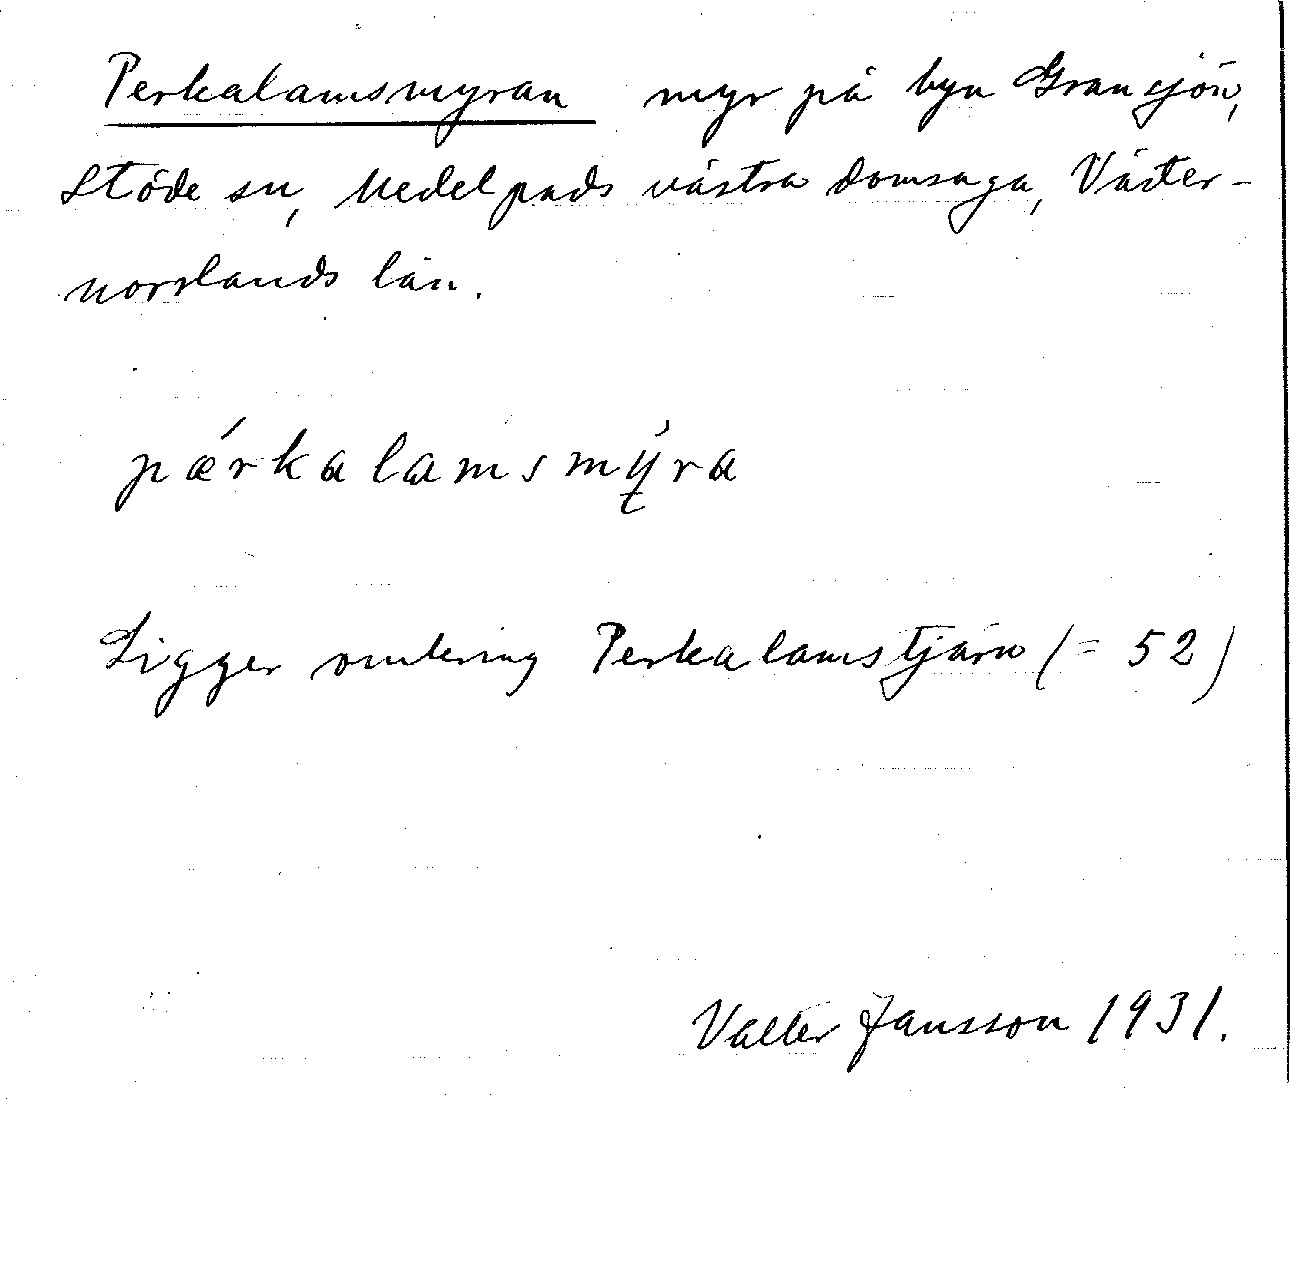 Perkalamsmyran myr på byn Gransjön,
Stöde sn, Medelpads västra domsaga, Väster-
norrlands län.
pǽrkalamsmỳ̨ra
Ligger omkring Perkalamstjärn (= 52)
Valter Jansson 1931.